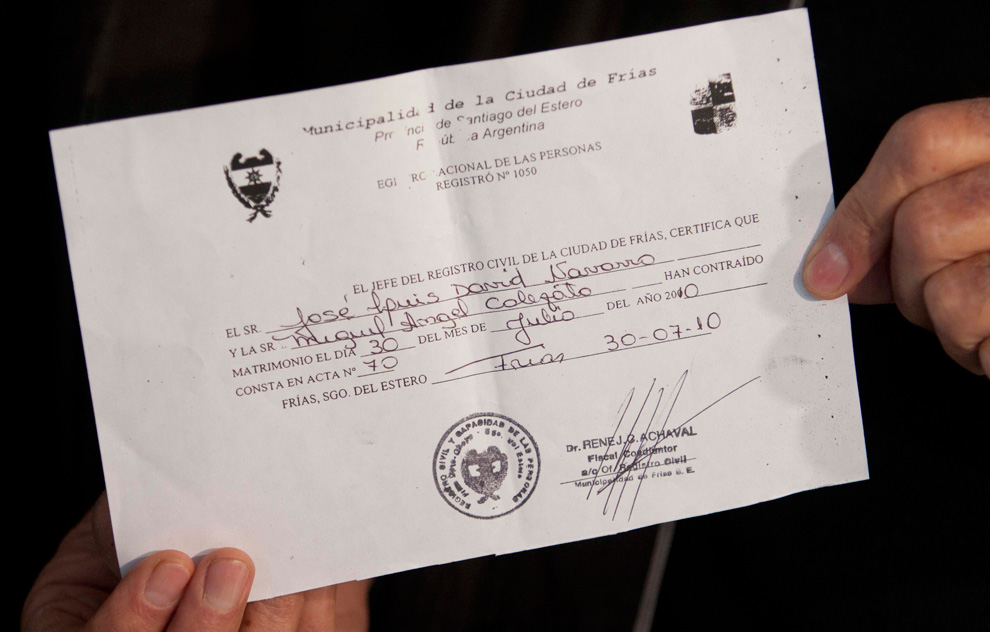 Municipalidad de la Ciudad de Frías
Pr nci de Santiago del Estero
R úb a Argentina
EGI RO ACIONAL DE LAS PERSONAS
REGISTRÓ Nº 1050
EL JEFE DEL REGISTRO CIVIL DE LA CIUDAD DE FRÍAS, CERTIFICA QUE
EL SR. José Luis David Navarro
Y LA SR. Miguel Angel Calefato HAN CONTRAÍDO
MATRIMONIO EL DÍA 30 DEL MES DE Julio DEL AÑO 2010
CONSTA EN ACTA Nº 70
FRÍAS, SGO. DEL ESTERO Frias 30-07-10
REGISTRO CIVIL Y CAPACIDAD DE LAS PERSONAS
Sgo. del Estero
Dr. RENE J. G. ACHAVAL
Fiscal
a/c Of. Registro Civil
Municipalidad de Frias S. E.